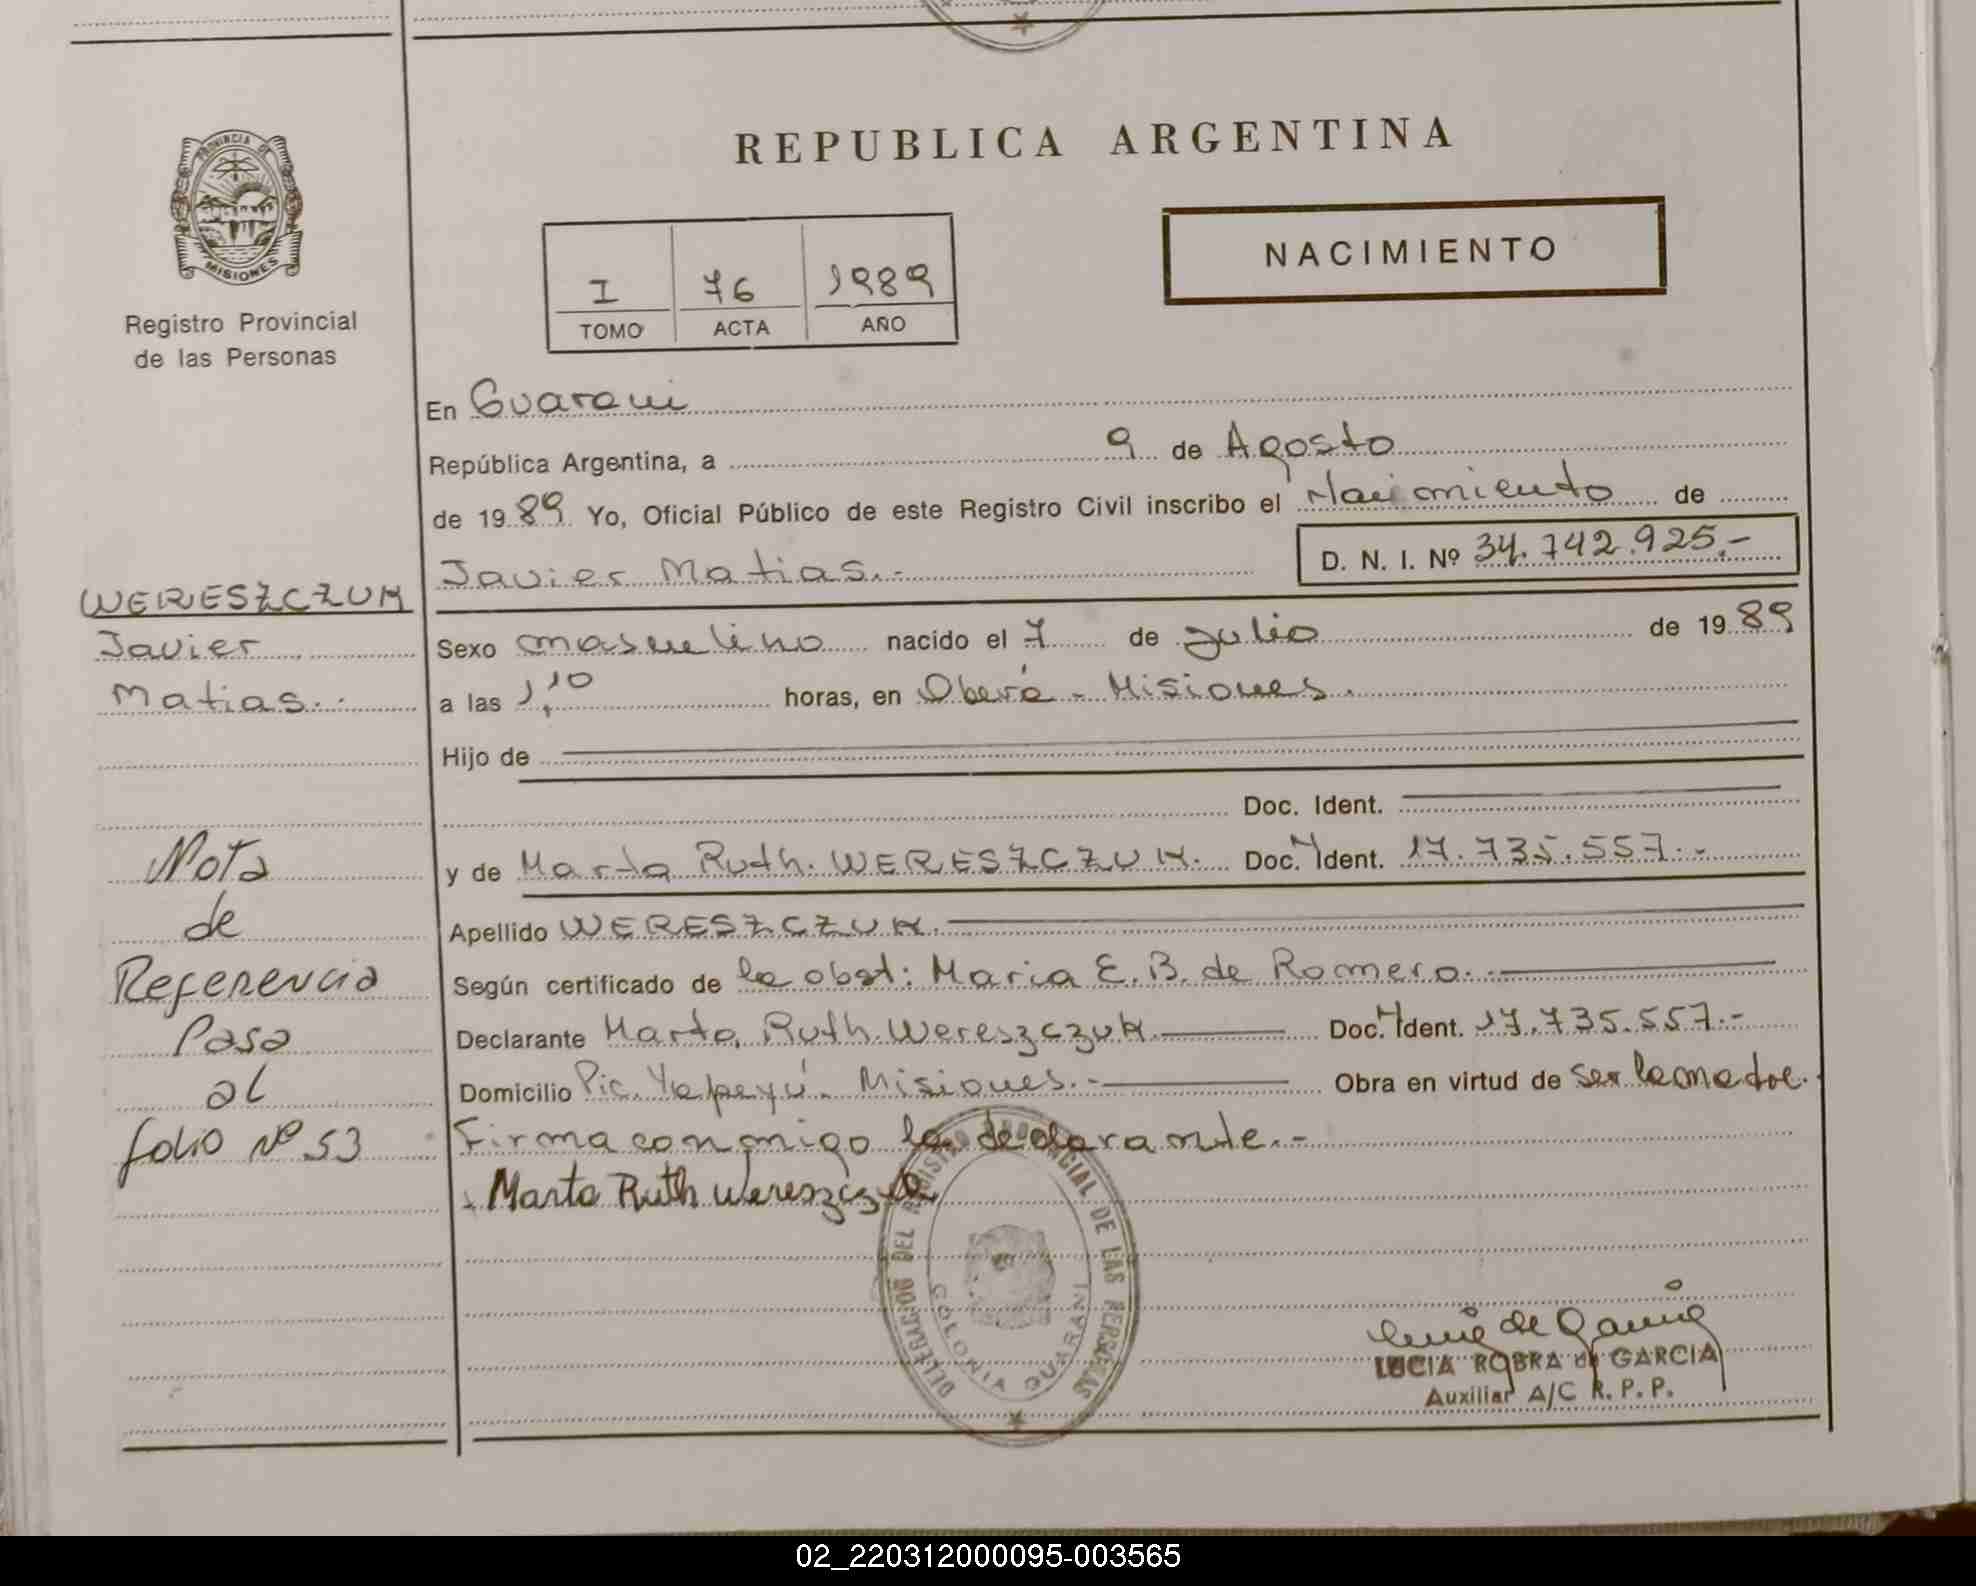 PROVINCIA DE
MISIONES
Registro Provincial
de las Personas
WERESZCZUK
Javier
Matias.-
Nota
de
Referencia
Pasa
al
folio Nº 53
REPUBLICA ARGENTINA
NACIMIENTO
I 76 1989
TOMO ACTA AÑO
En Guarani
República Argentina, a 9 de Agosto
de 1989 Yo, Oficial Público de este Registro Civil inscribo el Nacimiento de
Javier Matias.- D. N. I. Nº 34.742.925.-
Sexo masculino nacido el 7 de Julio de 1989
a las 1,10 horas, en Oberá - Misiones.
Hijo de
Doc. Ident.
y de Marta Ruth. WERESZCZUK. Doc. Ident. 17.735.557.-
Apellido WERESZCZUK.
Según certificado de la obst: Maria E. B. de Romero.-
Declarante Marta Ruth Wereszczuk. Doc. Ident. 17.735.557.-
Domicilio Pic. Yapeyú - Misiones.- Obra en virtud de ser la madre.
Firma conmigo la declarante.-
Marta Ruth Wereszczuk
DELEGACION DEL REGISTRO PROVINCIAL DE LAS PERSONAS
COLONIA GUARANI
LUCIA ROBRA de GARCIA
Auxiliar A/C R. P. P.
02_220312000095-003565